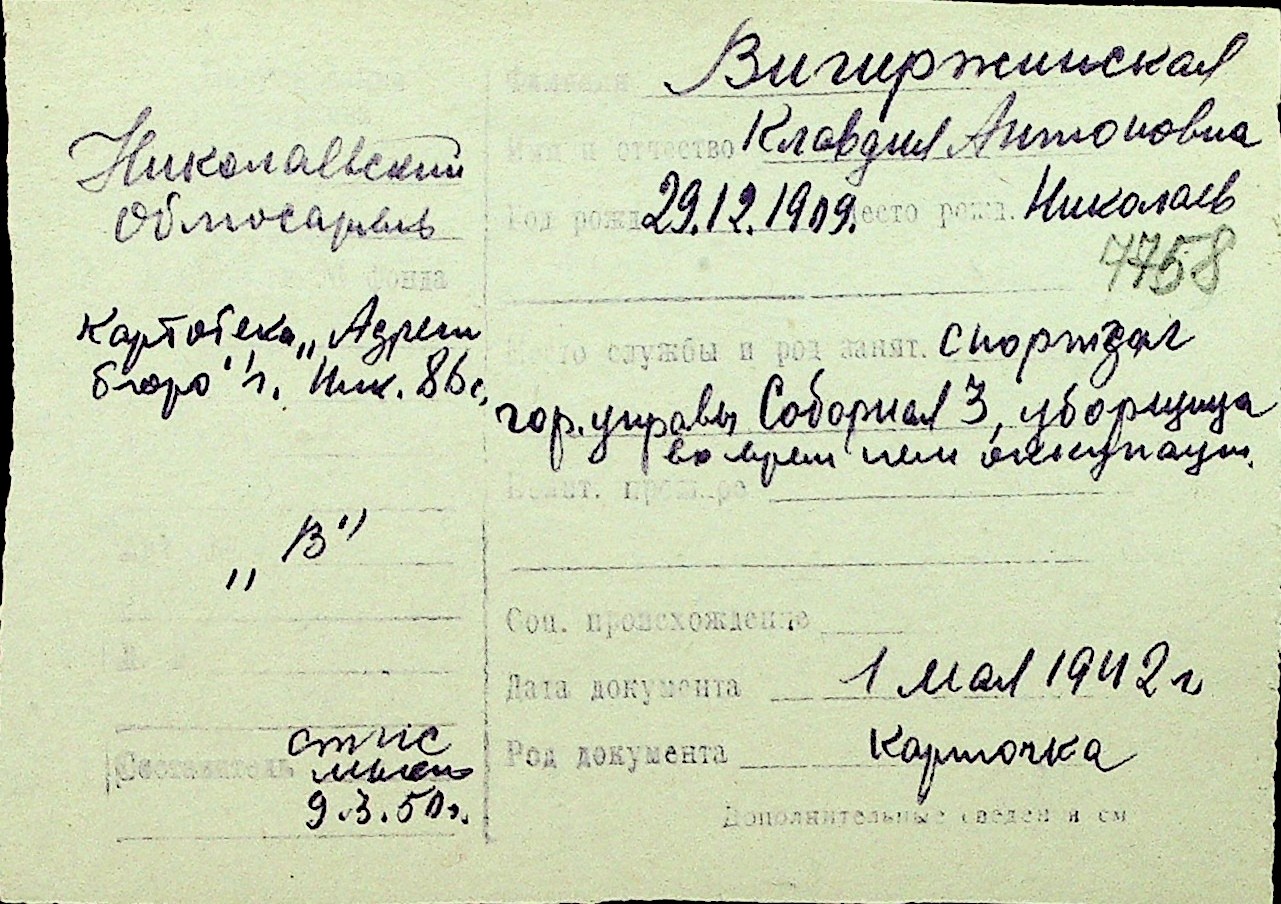 Фамилия Вигиржинская
Имя и отчество Клавдия Антоновна
Год рожд. 29.12.1909. Место рожд. Николаев
7758
Место службы и род занят. спортзал
гор. управы Соборная 3, уборщица
во врем нем оккупации.
Полит. прошлое
Соц. происхождение
Дата документа 1 мая 1942 г
Род документа карточка
Дополнительные сведения см
Николаевский
Облгосархив
№ фонда
Картотека „Адресн
бюро" г. Ник.
„В"
Составитель
9.3.50г.